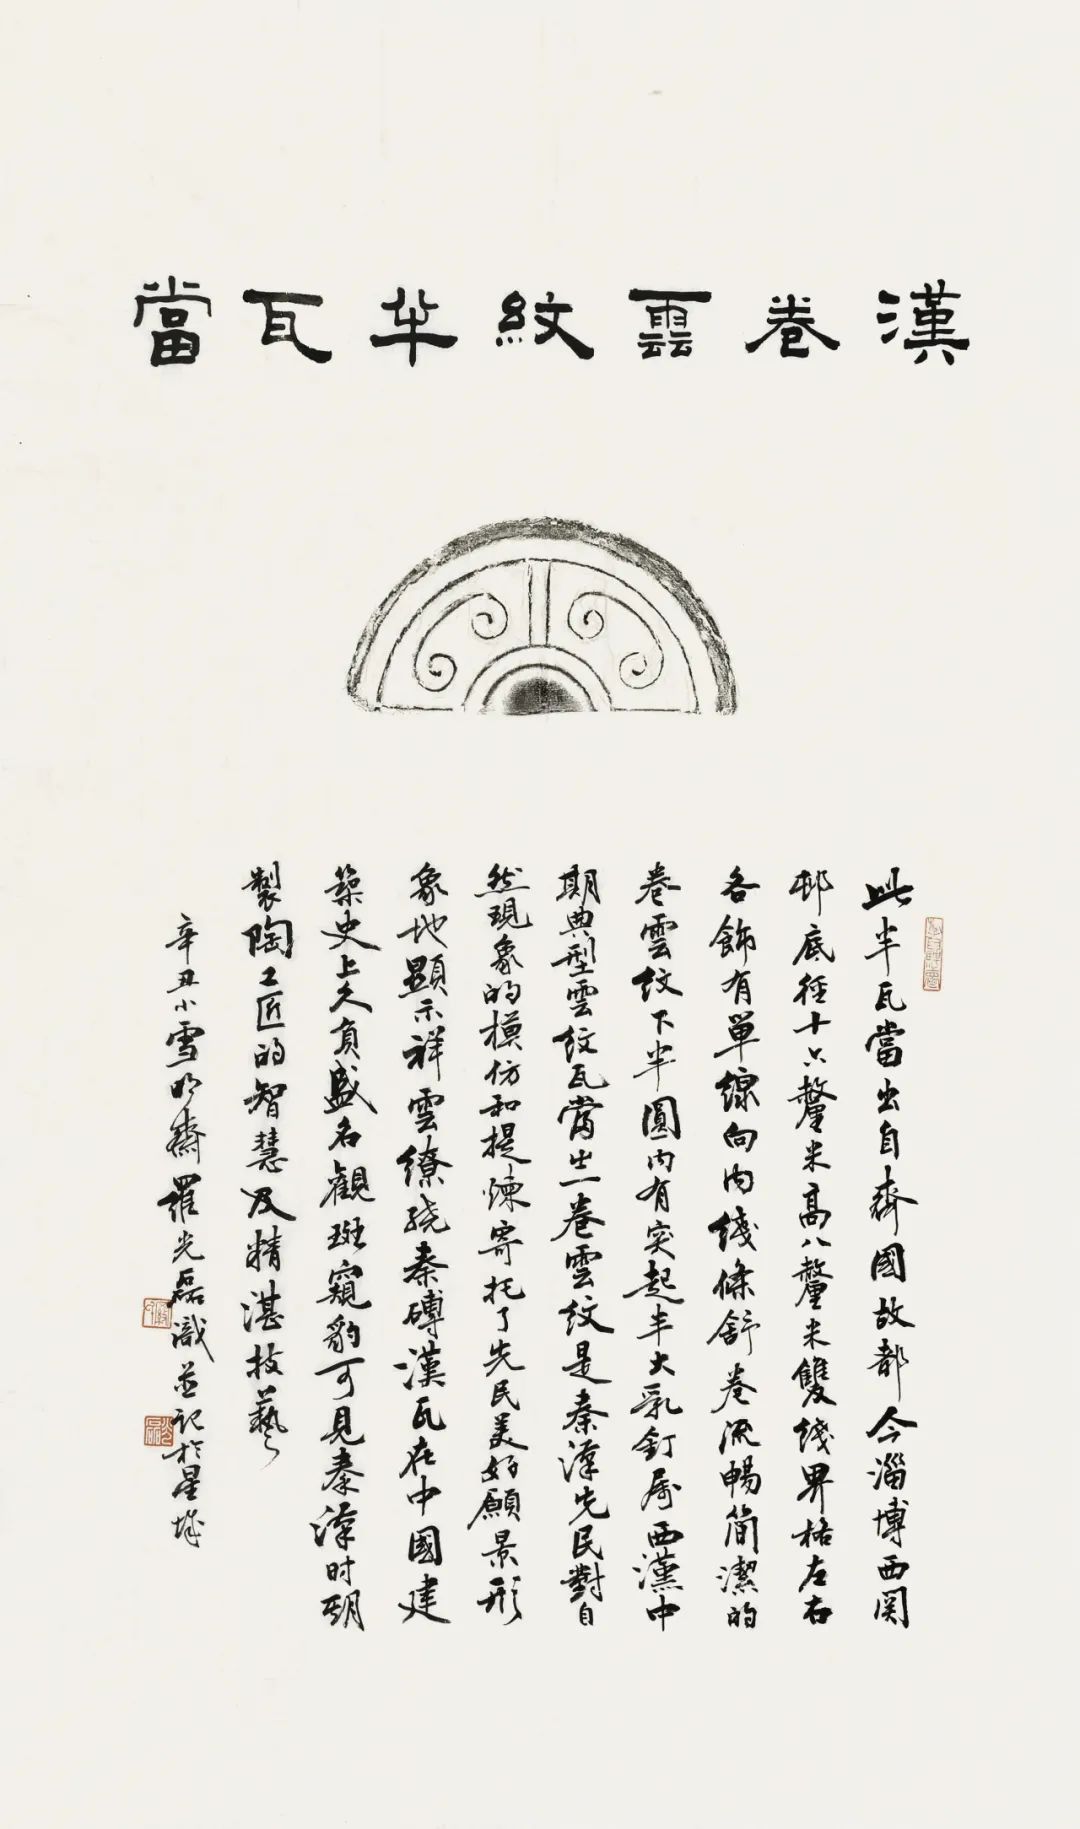 漢卷雲紋半瓦當
此半瓦當出自齊國故都今淄博西関
邨底徑十六釐米高八釐米雙綫界格左右
各飾有單線向内綫條舒卷流暢簡潔的
卷雲纹下半圓内有突起半大乳釘属西漢中
期典型雲纹瓦當出一卷雲纹是秦漢先民對自
然現象的模仿和提煉寄托了先民美好願景形
象地顯示祥雲繚繞秦磚漢瓦在中國建
築史上久負盛名觀斑窺豹可見秦漢时期
製陶工匠的智慧及精湛技藝
辛丑小雪明齋羅光磊識並記於星城